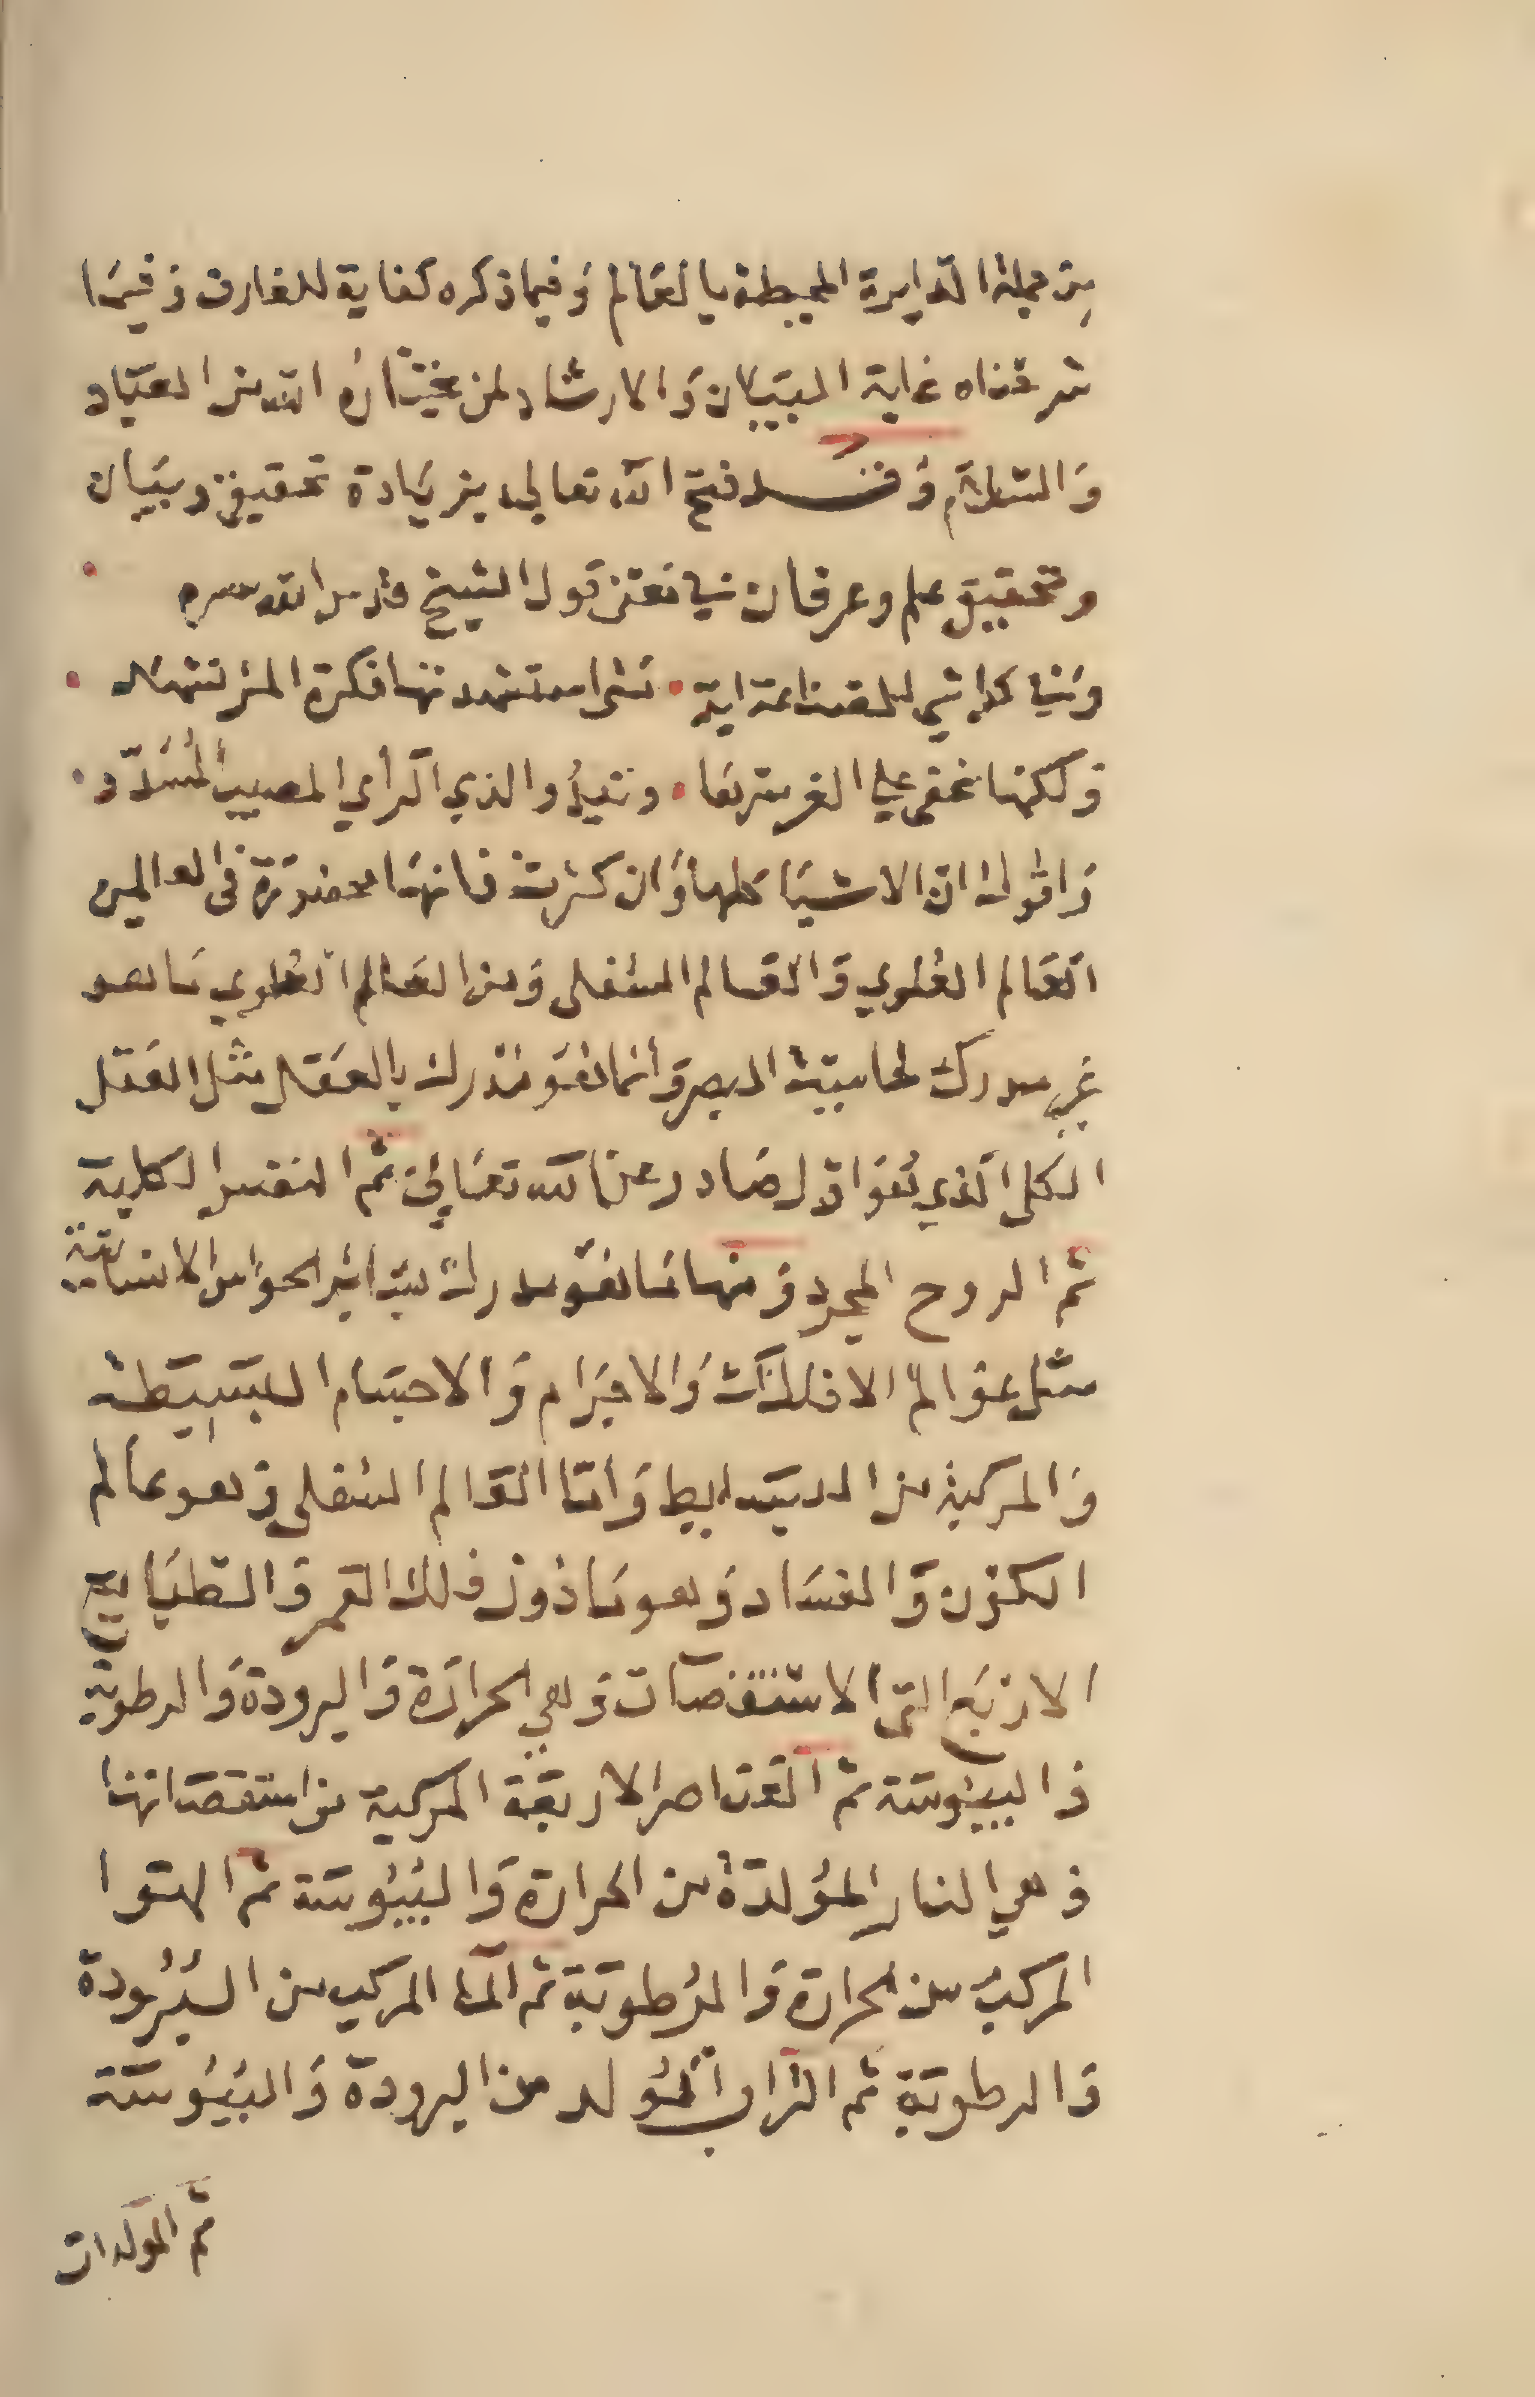 من جملة الدايرة المحيطة بالعالم وفيما ذكره كفاية للعارف وفيما
شرحناه غاية البيان والارشاد لمن يختاره الله من العباد
والسلام وقد فتح الله تعالى بزيادة تحقيق وبيان
وتحقيق علم وعرفان في معنى قول الشيخ قدس الله سره
وفي كل شي للصناعة اية تى استشهد تها فكرة المر تشهد
ولكنها تخفى على الغر سرها وتبدو الذي الرأي المصيب المسدد
واقول ان الاشيا كلها وان كثرت فانها محصورة في العالمين
العالم العلوي والعالم السفلي ومن العالم العلوي ما هو
غير مدرك لحاسة البصر وأنما هو مدرك بالعقل مثل العقل
الكلي الذي هو اول صادر عن الله تعالى ثم النفس الكلية
ثم الروح المجرد ومنها ما هو مدرك بساير الحواس الانسانية
مثل عوالم الافلاك والاجرام والاجسام البسيطة
والمركبة من البسايط وأما العالم السفلي وهو عالم
الكون والفساد وهو ما دون فلك القمر والطبايع
الاربع التي الاستقصات وهي الحرارة والبرودة والرطوبة
واليبوسة ثم العناصر الاربعة المركبة من استقصاتها
وهي النار المولدة من الحرارة واليبوسة ثم الهوا
المركب من الحرارة والرطوبة ثم الما المركب من البرودة
والرطوبة ثم التراب المولد من البرودة واليبوسة
ثم المولدات